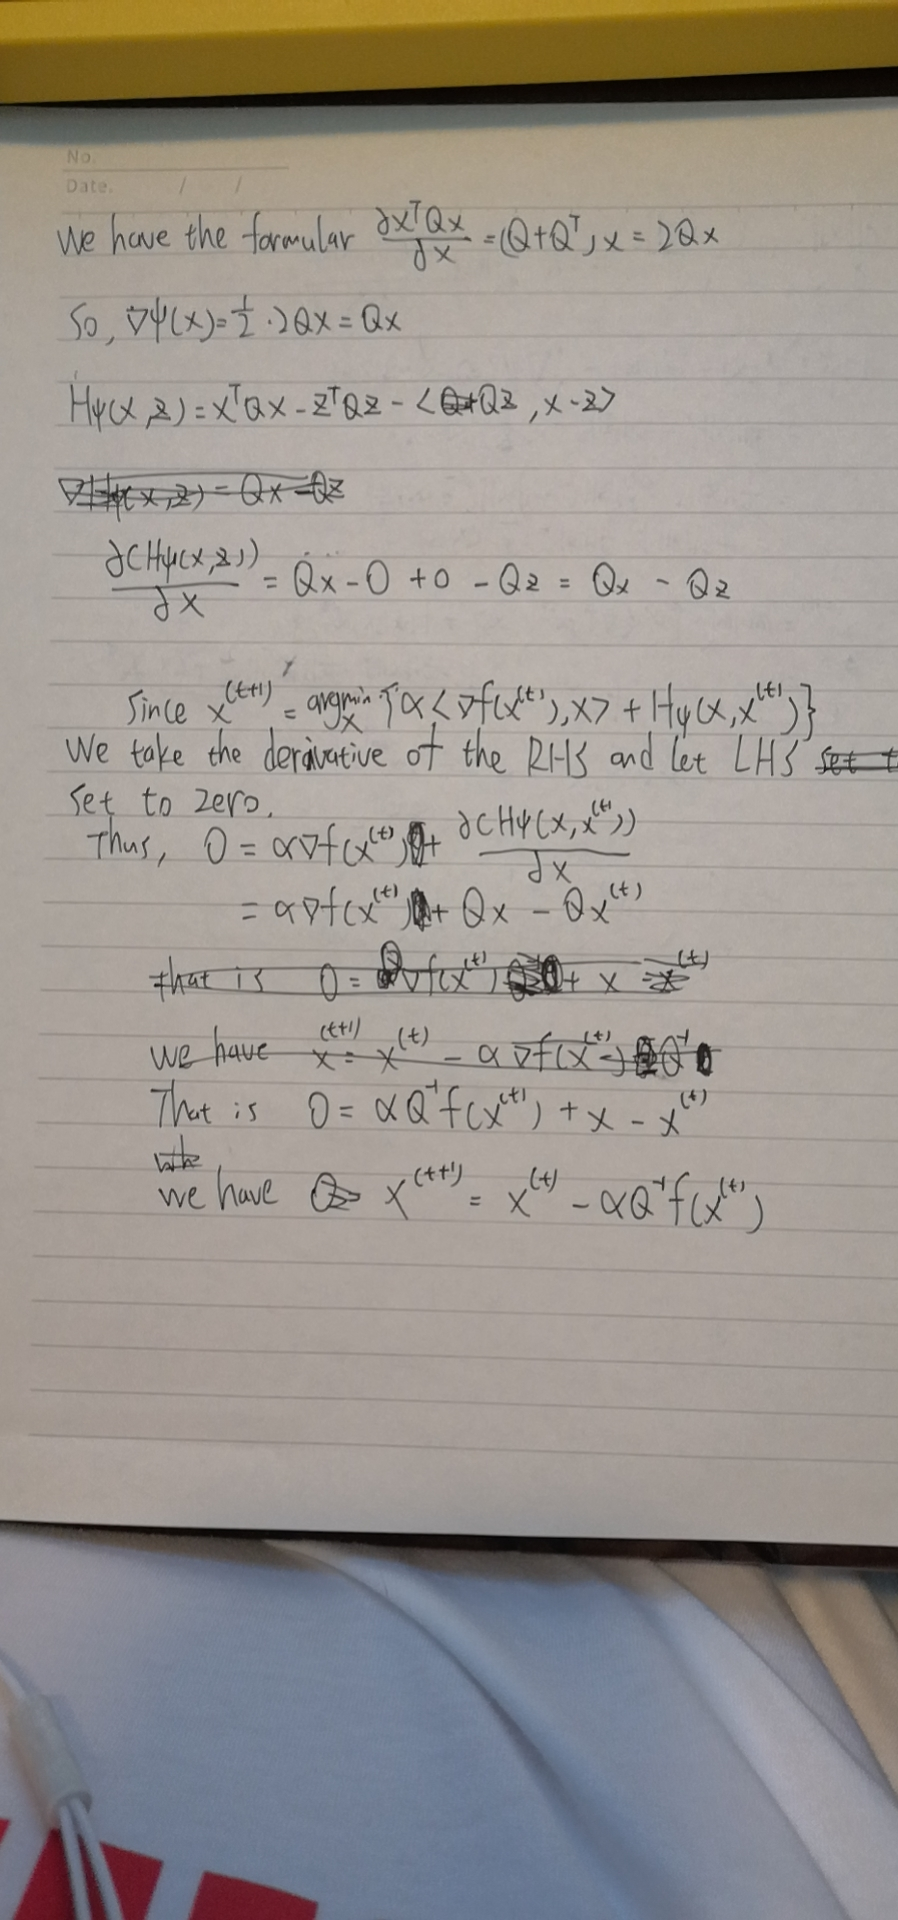 No.
Date. / /
We have the formular ∂x^T Qx / ∂x = (Q+Q^T)x = 2Qx
So, ∇ψ(x) = 1/2 · 2Qx = Qx
Hψ(x,z) = x^T Qx - z^T Qz - <Qz, x-z>
∇Hψ(x,z) = Qx - Qz
∂(Hψ(x,z)) / ∂x = Qx - 0 + 0 - Qz = Qx - Qz
Since x^(t+1) = argmin_x {α<∇f(x^(t)), x> + Hψ(x,x^(t))}
We take the derivative of the RHS and let LHS set t
set to zero.
Thus, 0 = α∇f(x^(t)) + ∂(Hψ(x,x^(t))) / ∂x
= α∇f(x^(t)) + Qx - Qx^(t)
that is 0 = ∇f(x^(t)) + x - x^(t)
we have x^(t+1) = x^(t) - α∇f(x^(t)) Q^-1
That is 0 = αQ^-1 f(x^(t)) + x - x^(t)
we have x^(t+1) = x^(t) - αQ^-1 f(x^(t))